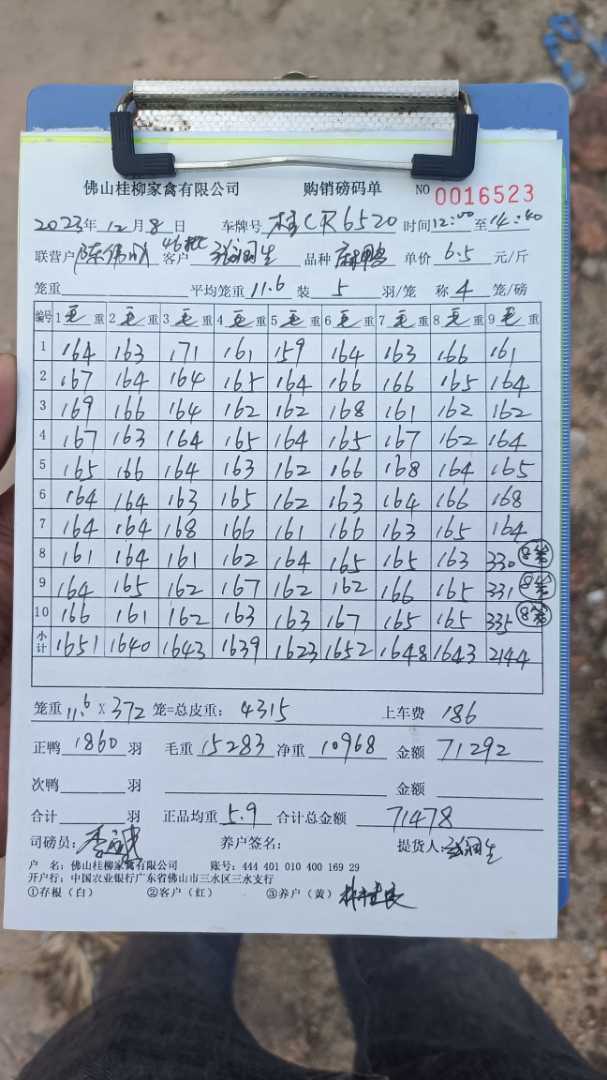 佛山桂柳家禽有限公司 购销磅码单 NO 0016523
2023年12月8日 车牌号 桂CR6520 时间12:00至14:40
联营户 陈伟成 46批 客户 张润生 品种 麻鸭 单价 6.5 元/斤
笼重 平均笼重 11.6 装 5 羽/笼 称 4 笼/磅
编号 1毛重 2毛重 3毛重 4毛重 5毛重 6毛重 7毛重 8毛重 9毛重
1 164 163 171 161 159 164 163 166 161
2 167 164 164 165 164 166 166 165 164
3 169 166 164 162 162 168 161 162 162
4 167 163 164 165 164 165 167 162 164
5 165 166 164 163 162 166 168 164 165
6 164 164 163 165 162 163 164 166 168
7 164 164 168 166 161 166 163 165 164
8 161 164 161 162 164 165 165 163 330 8笼
9 164 165 162 167 162 162 166 165 331 8笼
10 166 161 162 163 163 167 165 165 335 8笼
小计 1651 1640 1643 1639 1623 1652 1648 1643 2144
笼重 11.6 X 372 笼=总皮重: 4315 上车费 186
正鸭 1860 羽 毛重 15283 净重 10968 金额 71292
次鸭 羽 金额
合计 羽 正品均重 5.9 合计总金额 71478
司磅员: 养户签名: 提货人: 张润生
户 名: 佛山桂柳家禽有限公司 账号: 444 401 010 400 169 29
开户行: 中国农业银行广东省佛山市三水区三水支行
①存根(白) ②客户(红) ③养户(黄)